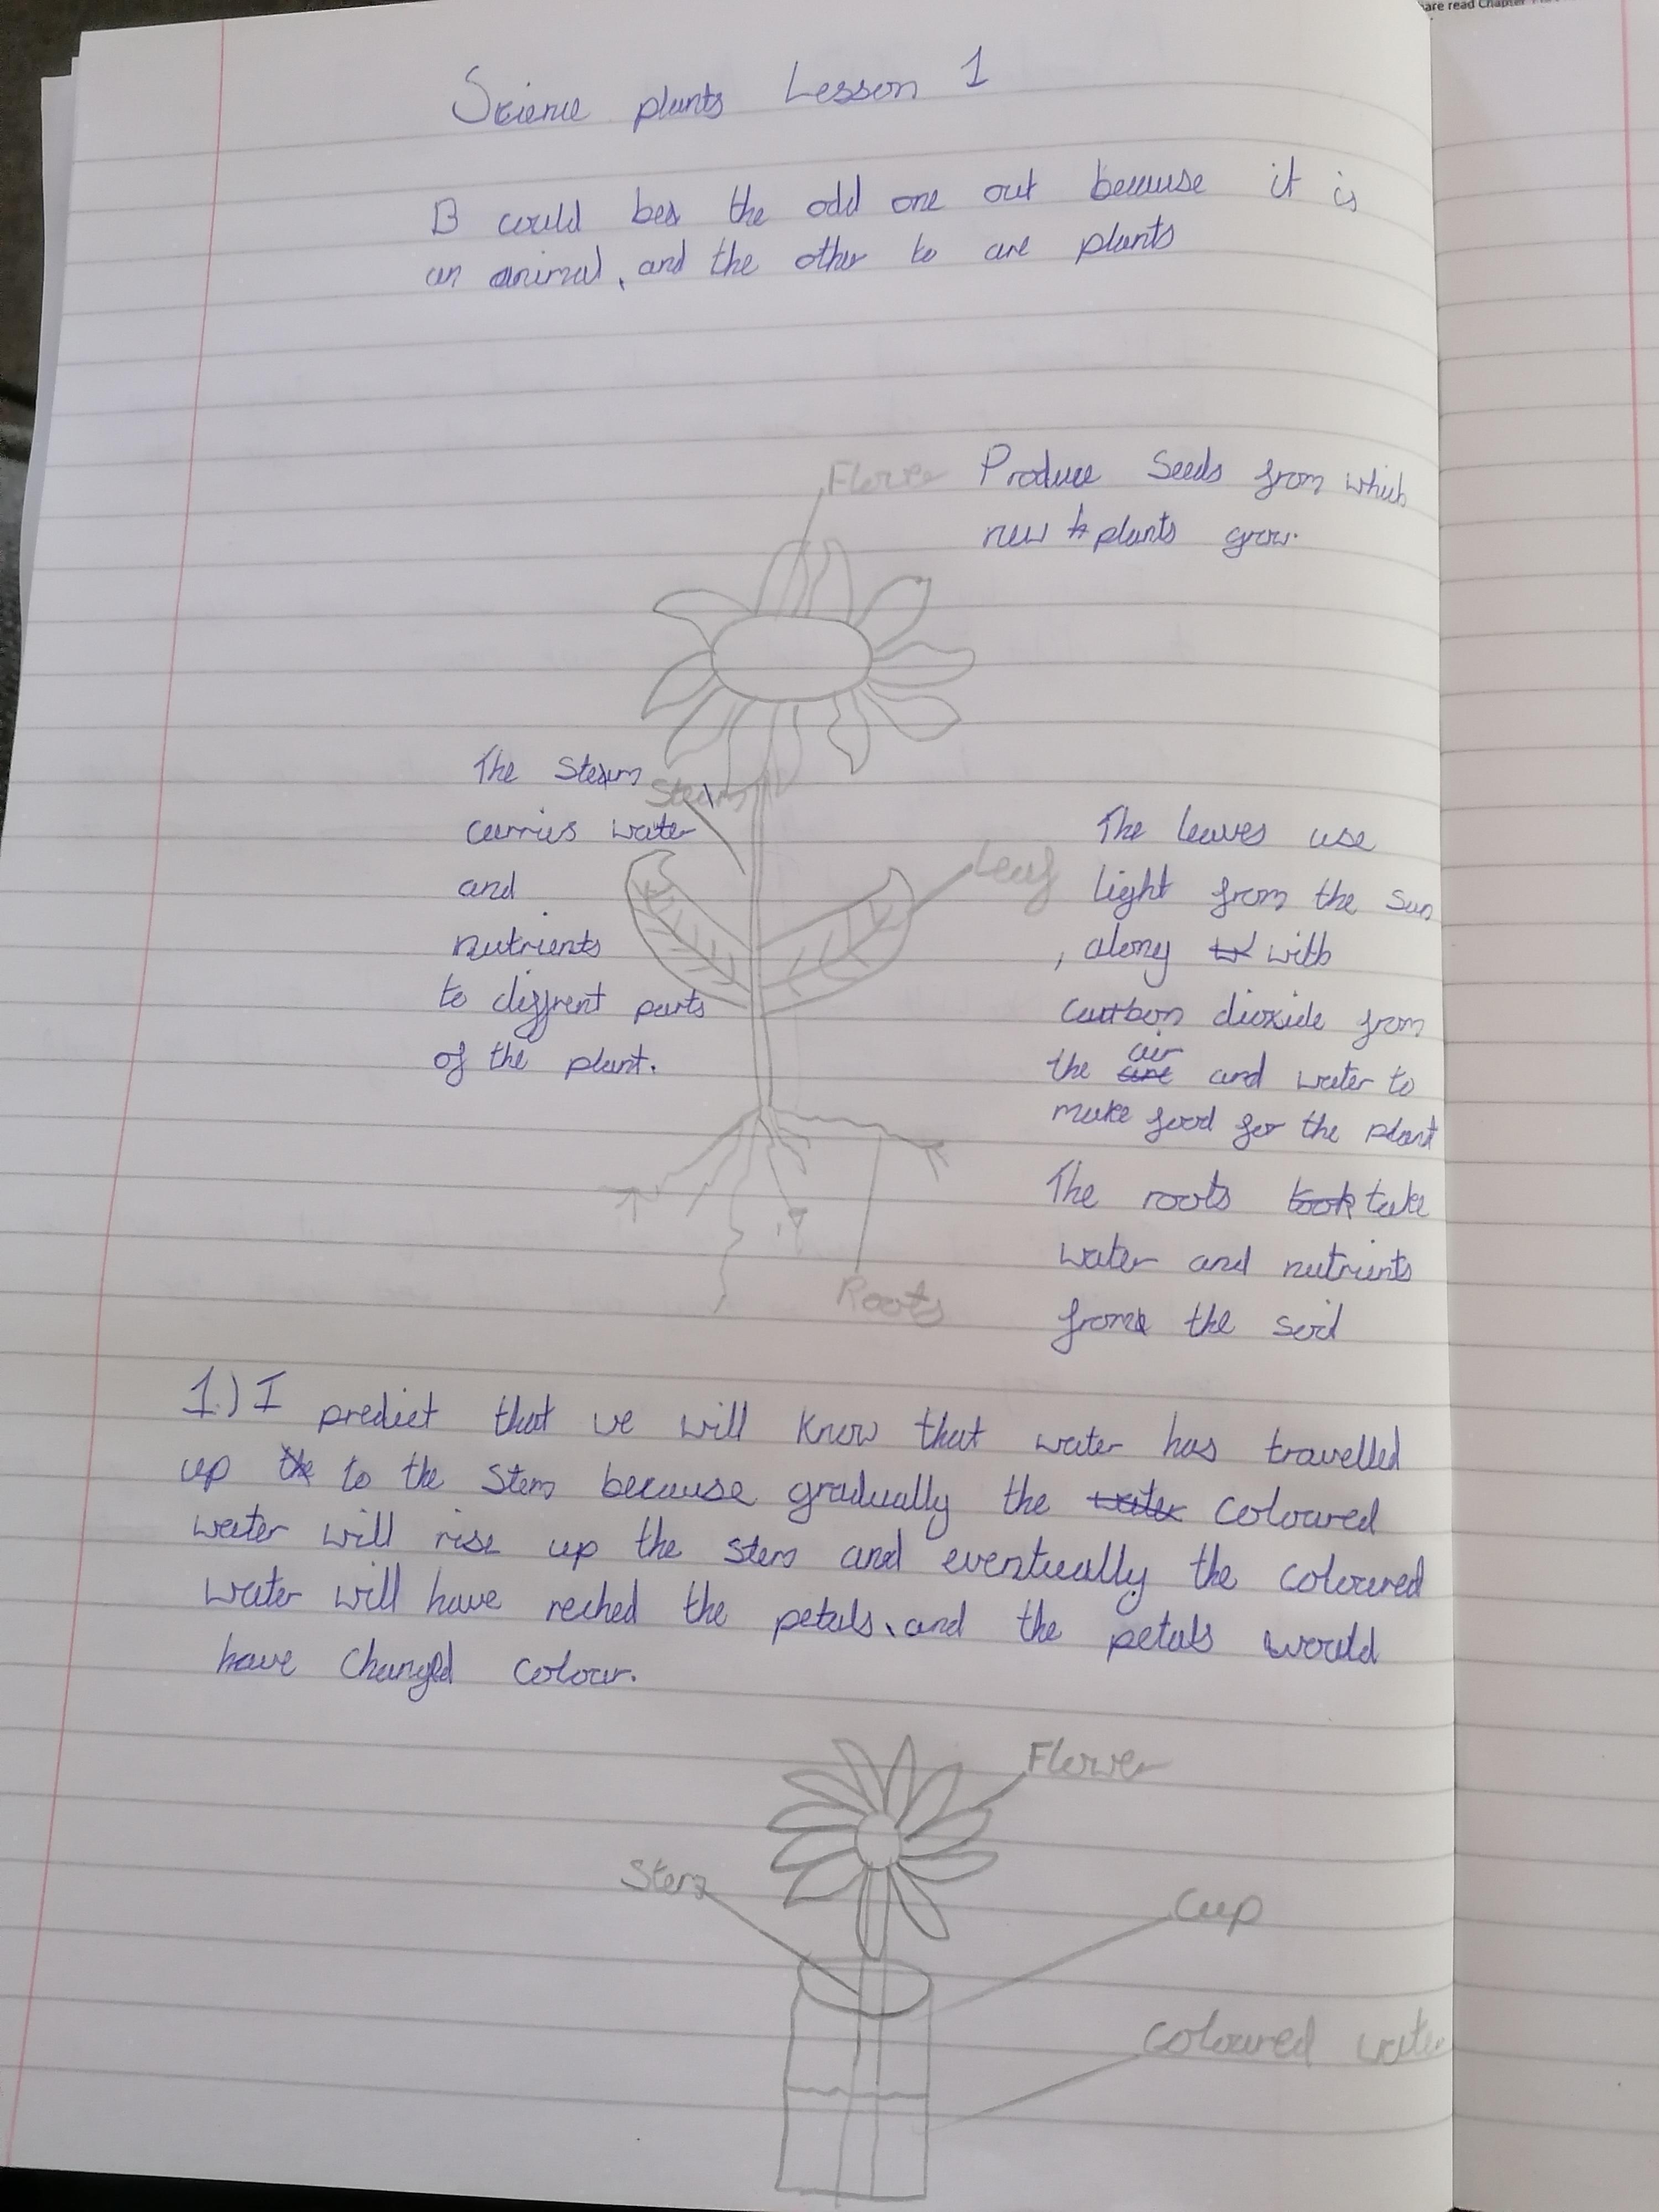 are read Chapter
Science plants Lesson 1
B could be the odd one out because it is
an animal, and the other to are plants
Flower Produce Seeds from which
new plants grow.
The Stem
Stem
carries water
and
nutrients
to diffrent parts
of the plant.
Leaf
The leaves use
light from the sun
, along with
carbon dioxide from
the air and water to
make food for the plant
The roots take
water and nutrients
from the soil
Roots
1.) I predict that we will know that water has travelled
up to the Stem because gradually the coloured
water will rise up the stem and eventually the coloured
water will have reched the petals, and the petals would
have changed colour.
Flower
Stem
Cup
Coloured water